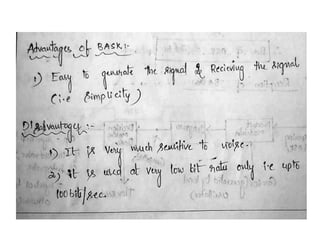 Advantages of BASK:-
1) Easy to generate the signal & Recieving the signal
(i.e Simplicity)
Disadvantages:-
1) It is very much sensitive to noise.
2) It is used at very low bit rates only i.e upto
100 bit/sec.